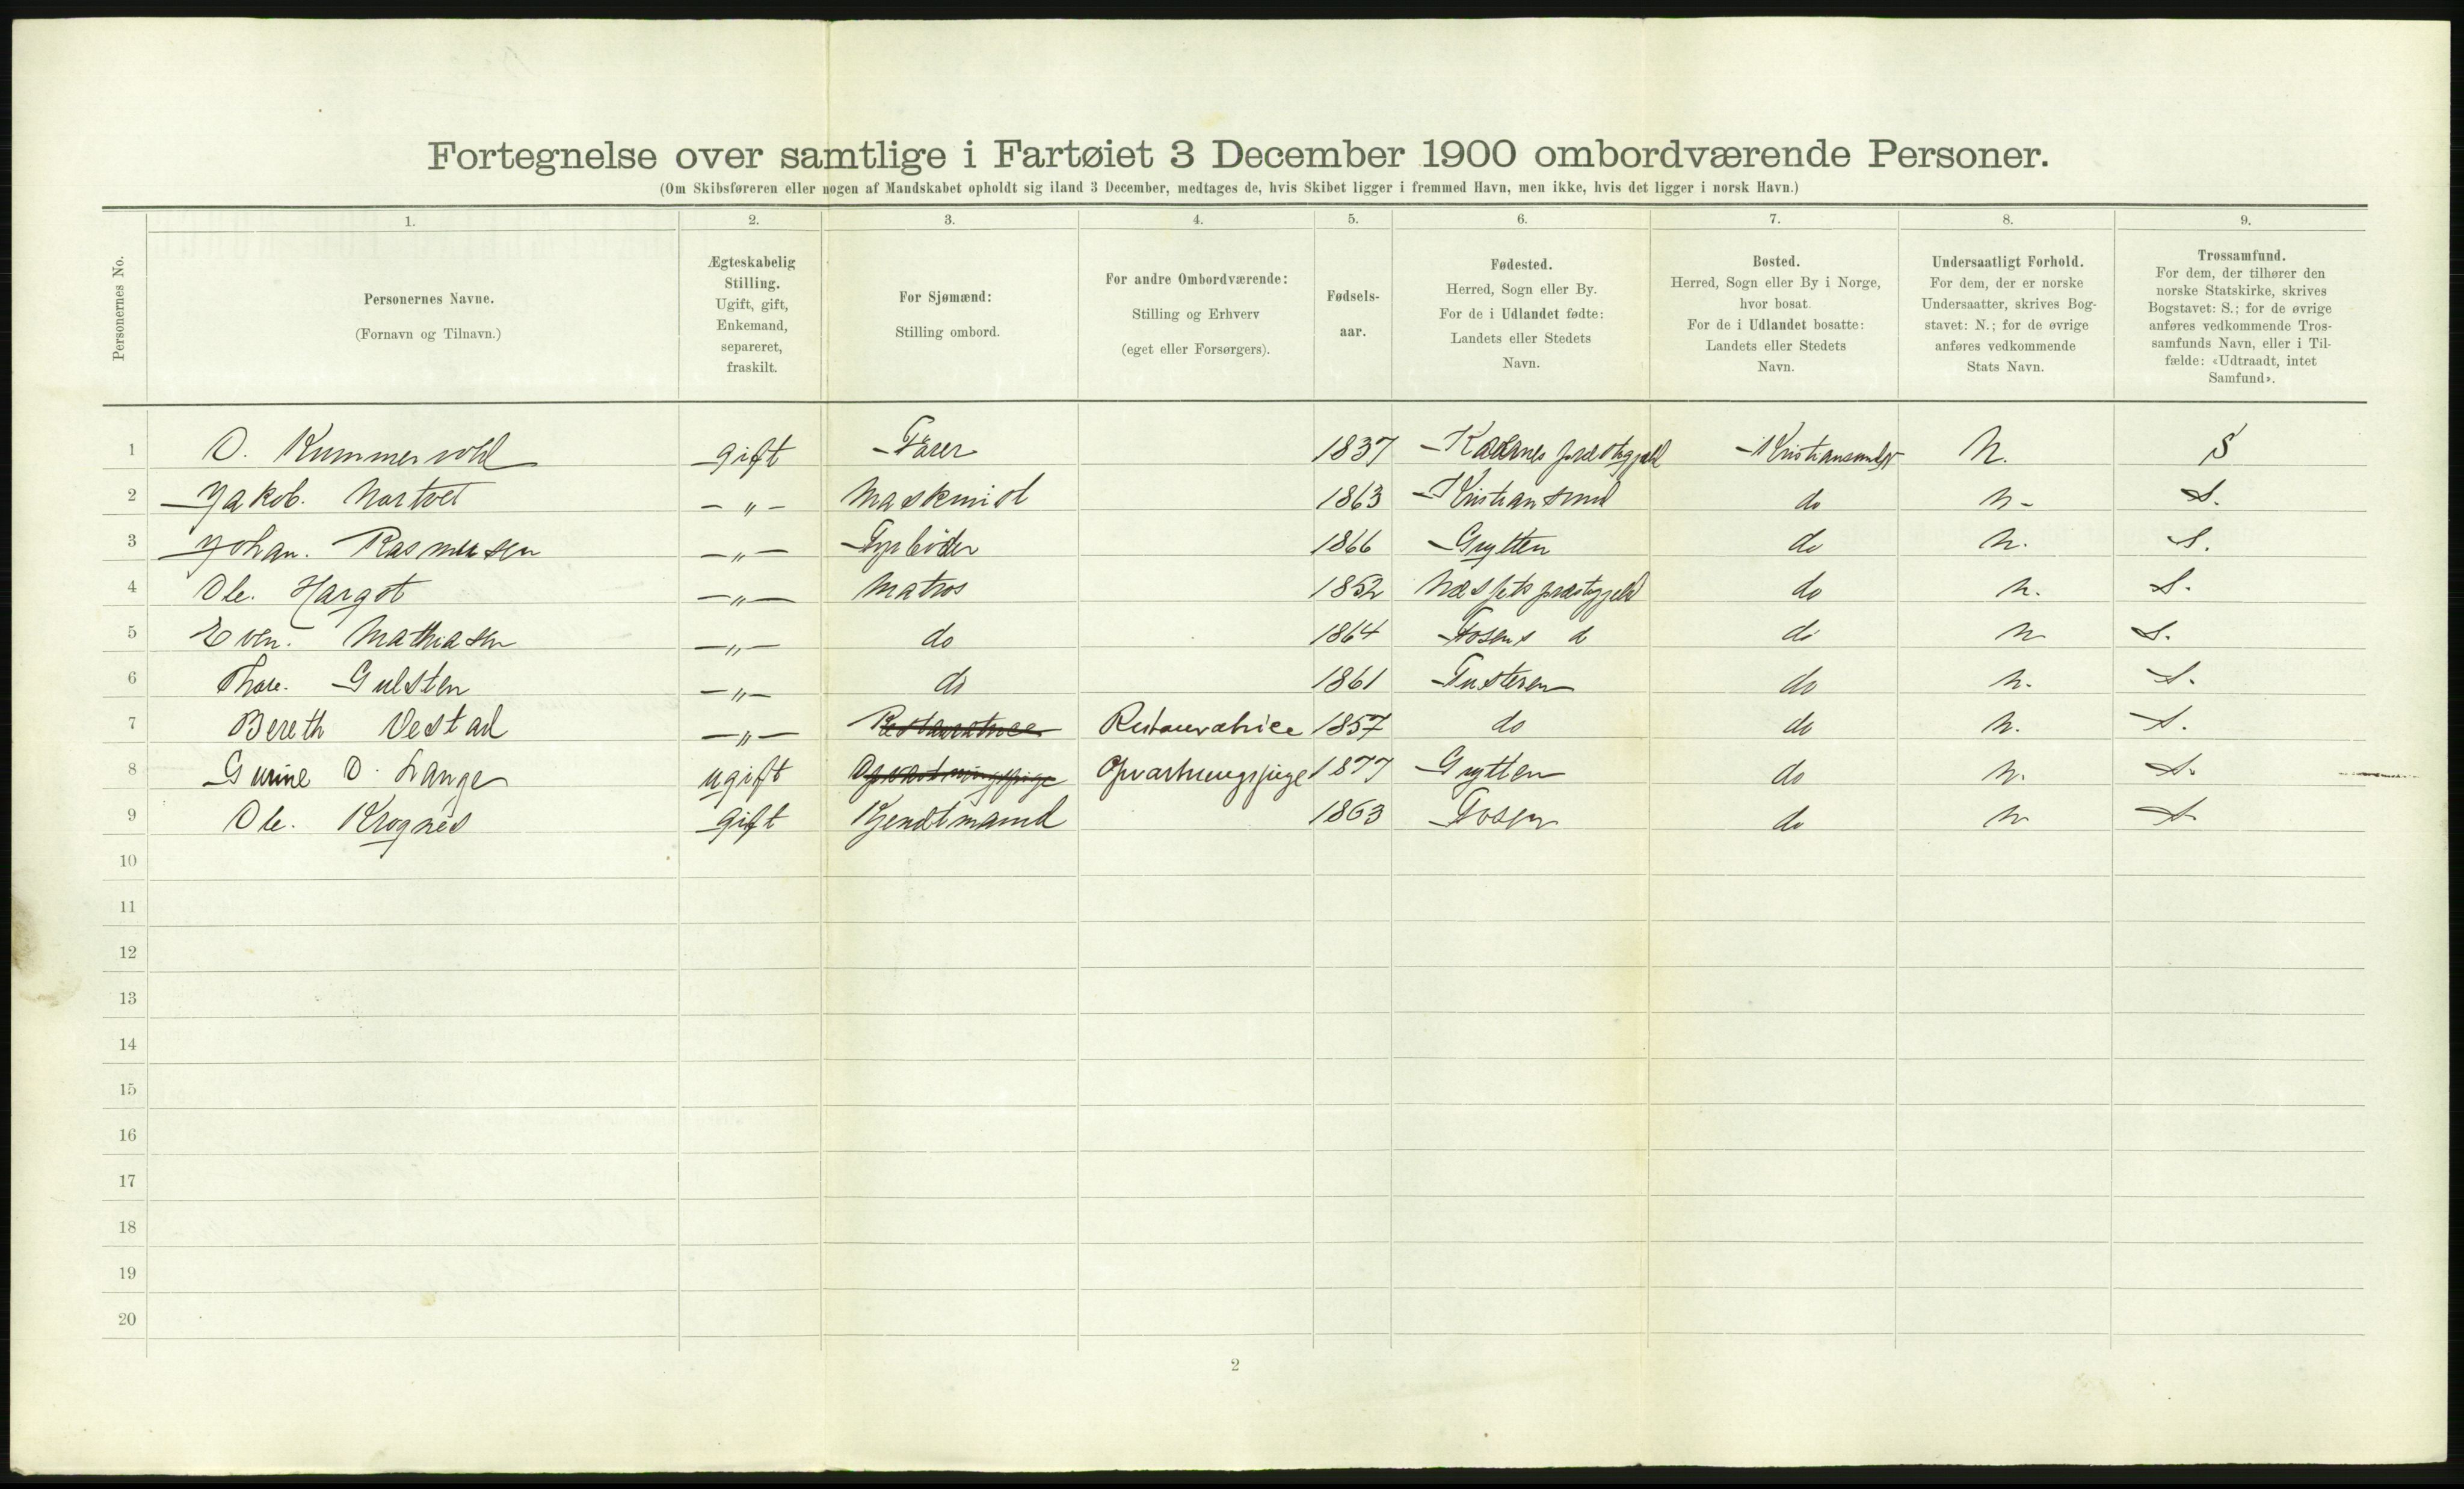 Fortegnelse over samtlige i Fartøiet 3 December 1900 ombordværende Personer.
(Om Skibsføreren eller nogen af Mandskabet opholdt sig iland 3 December, medtages de, hvis Skibet ligger i fremmed Havn, men ikke, hvis det ligger i norsk Havn.)
Personernes No.
1. 2. 3. 4. 5. 6. 7. 8. 9.
Personernes Navne.
(Fornavn og Tilnavn.)
Ægteskabelig
Stilling.
Ugift, gift,
Enkemand,
separeret,
fraskilt.
For Sjømænd:
Stilling ombord.
For andre Ombordværende:
Stilling og Erhverv
(eget eller Forsørgers).
Fødsels-
aar.
Fødested.
Herred, Sogn eller By.
For de i Udlandet fødte:
Landets eller Stedets
Navn.
Bosted.
Herred, Sogn eller By i Norge,
hvor bosat.
For de i Udlandet bosatte:
Landets eller Stedets
Navn.
Undersaatligt Forhold.
For dem, der er norske
Undersaatter, skrives Bog-
stavet: N.; for de øvrige
anføres vedkommende
Stats Navn.
Trossamfund.
For dem, der tilhører den
norske Statskirke, skrives
Bogstavet: S.; for de øvrige
anføres vedkommende Tros-
samfunds Navn, eller i Til-
fælde: «Udtraadt, intet
Samfund».
1 O. gift Fører 1837 N. S
2 Jakob. Nortvet - " - Maskinist 1863 Kristiansund do N- S.
3 Johan. Rasmusen - " - 1866 Grytten do N. S.
4 Ole. Hargot - " - Matros 1852 do N. S.
5 Even. Mathiasen - " - do 1864 Fosens d do N S.
6 Gulsten - " - do 1861 Tusteren do N. S.
7 Bereth Vestad - " - Restauratrice Restauratrice 1857 do do N. S.
8 Gurine O. Lange ugift Opvartningspige Opvartningspige 1877 Grytten do N. S.
9 Ole. Krognes gift Kjendtmand 1863 Fosen do N S.
10
11
12
13
14
15
16
17
18
19
20
2